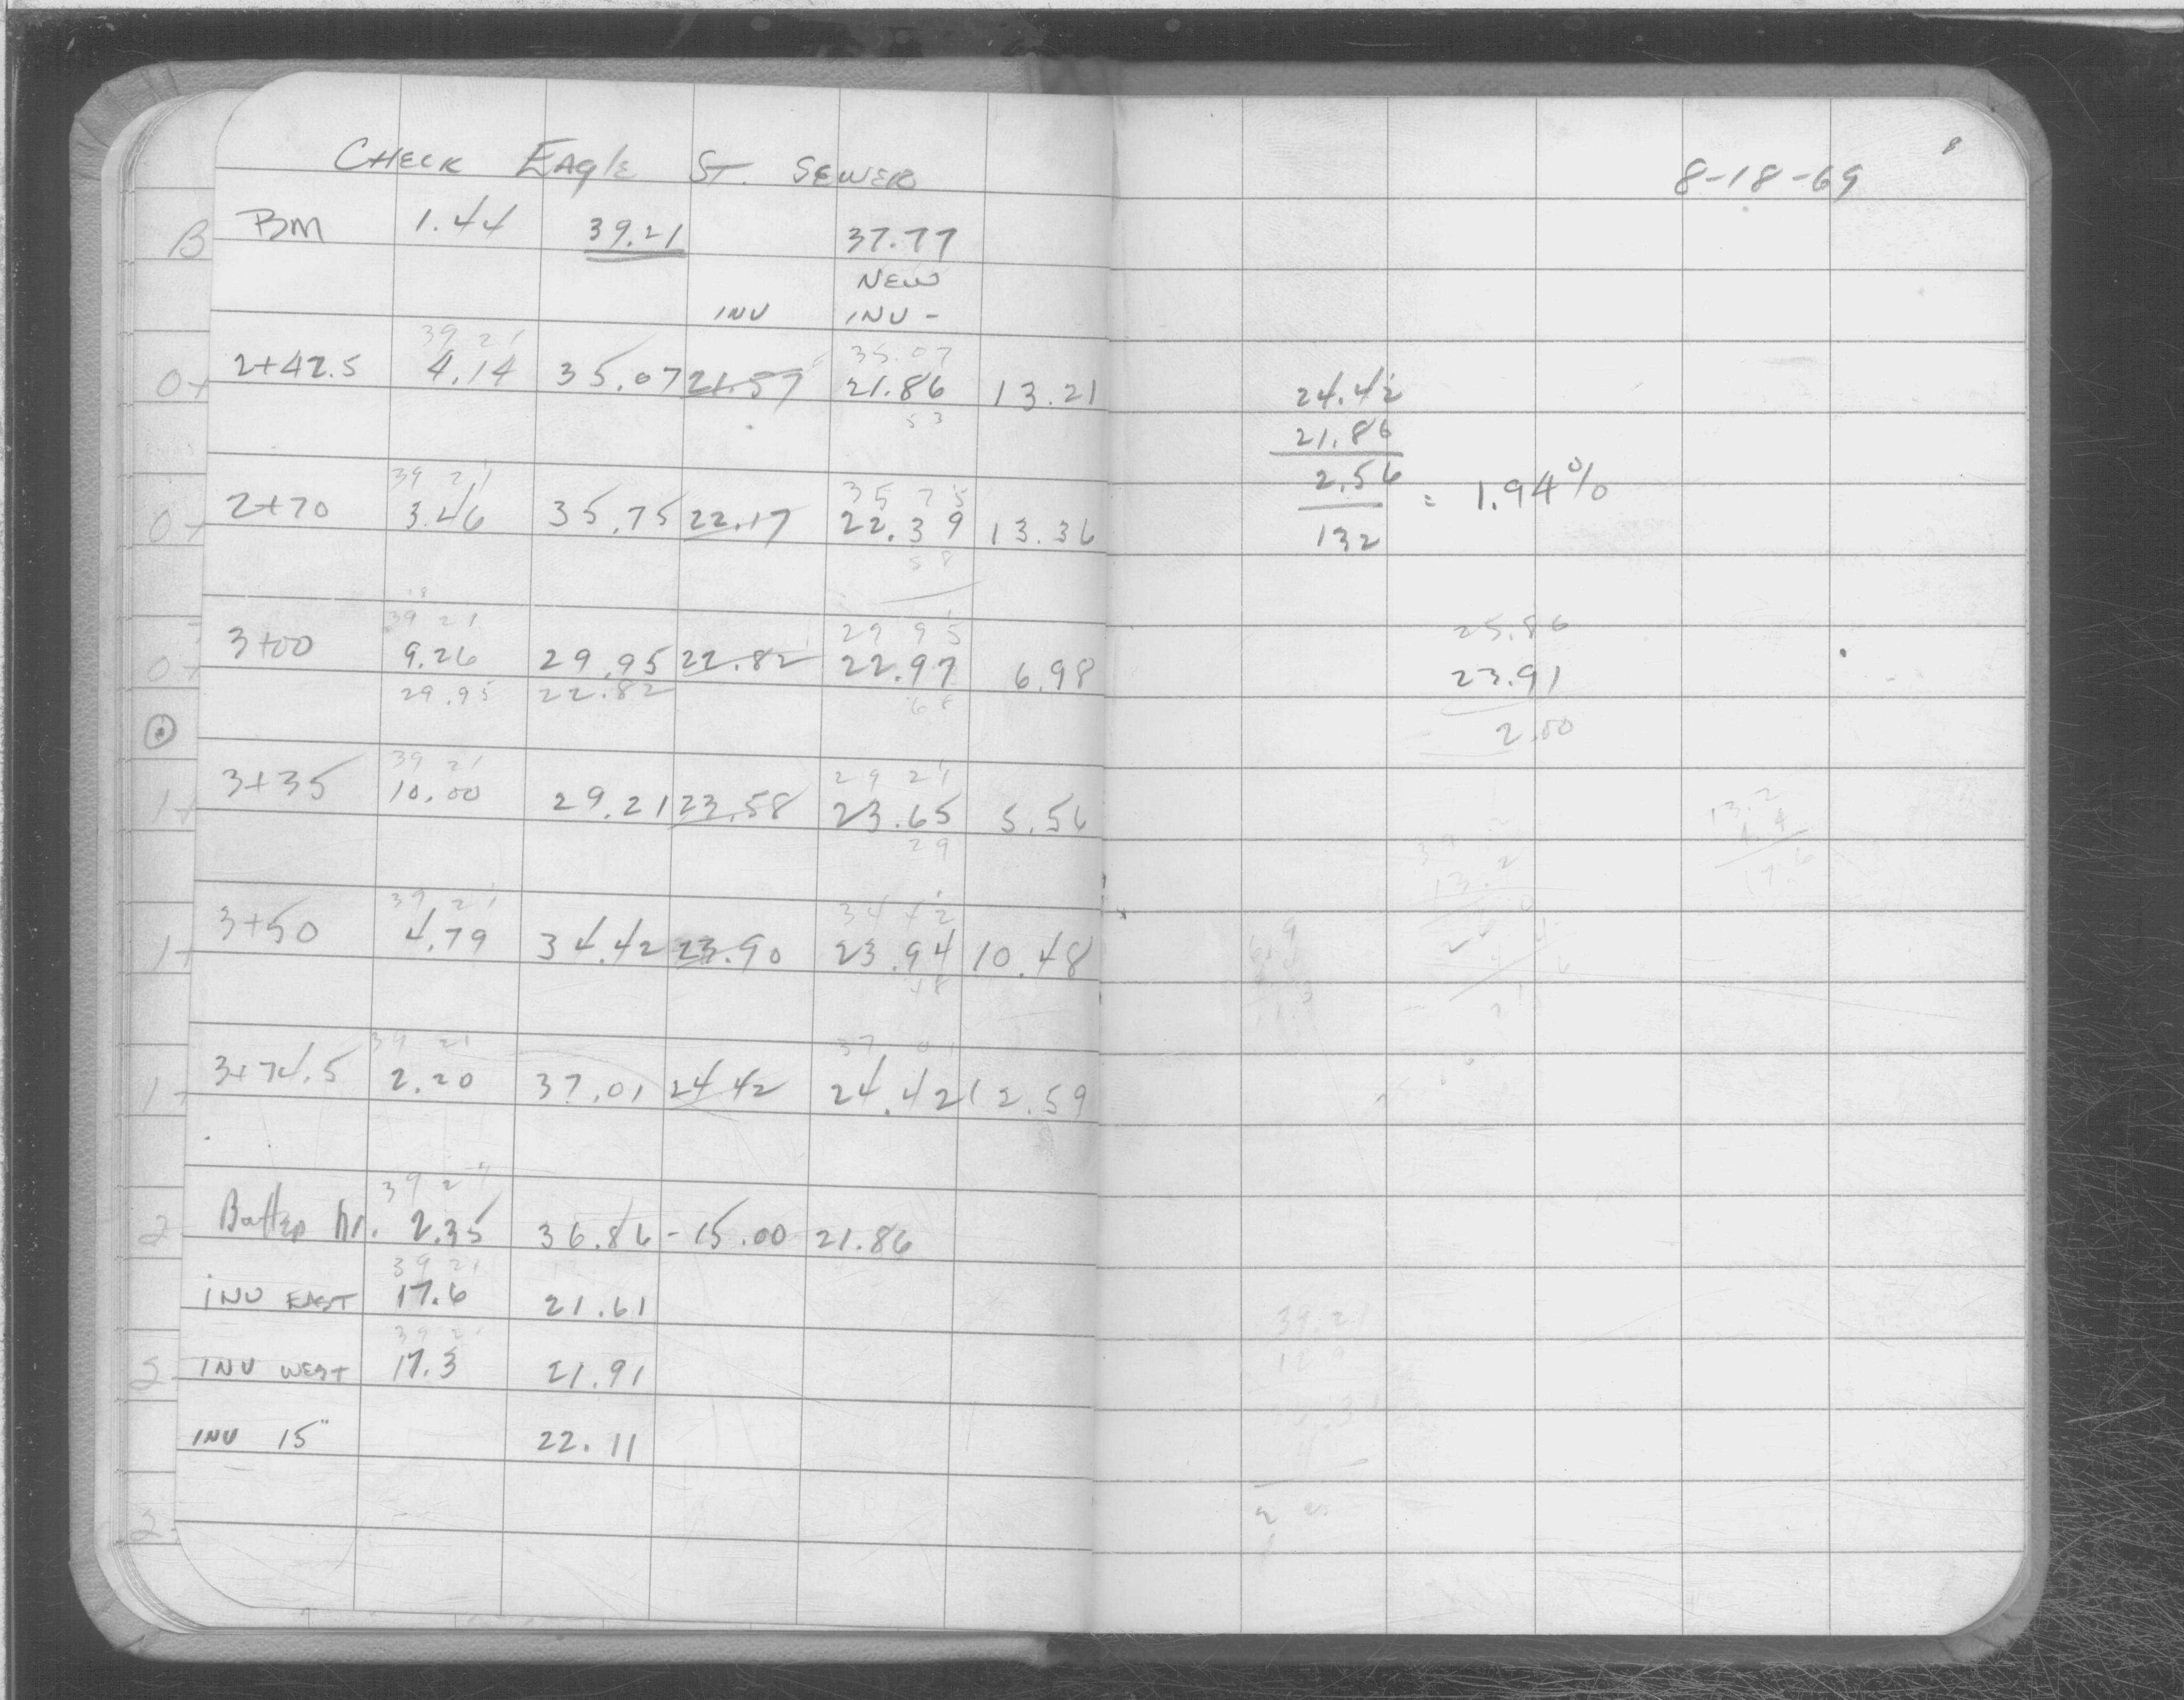 CHECK EAGLE ST. SEWER
BM 1.44 39.21 37.77
NEW
INV INV -
39 21 35.07
2+42.5 4.14 35.07 21.57 21.86 13.21
53
39 21 35 75
2+70 3.46 35.75 22.17 22.39 13.36
58
39 21 29 95
3+00 9.26 29.95 22.82 22.97 6.98
29.95 22.82 68
39 21 29 21
3+35 10.00 29.21 23.58 23.65 5.56
29
39 21 34 42
3+50 4.79 34.42 23.90 23.94 10.48
48
39 21 37 01
3+74.5 2.20 37.01 24.42 24.42 12.59
39 21
2.35 36.86 - 15.00 21.86
39 21
INV EAST 17.6 21.61
39 21
INV WEST 17.3 21.91
INV 15" 22.11
8
8-18-69
24.42
21.86
2.56
= 1.94%
132
25.86
23.91
2.00
13.2
4.4
17.6
39.21